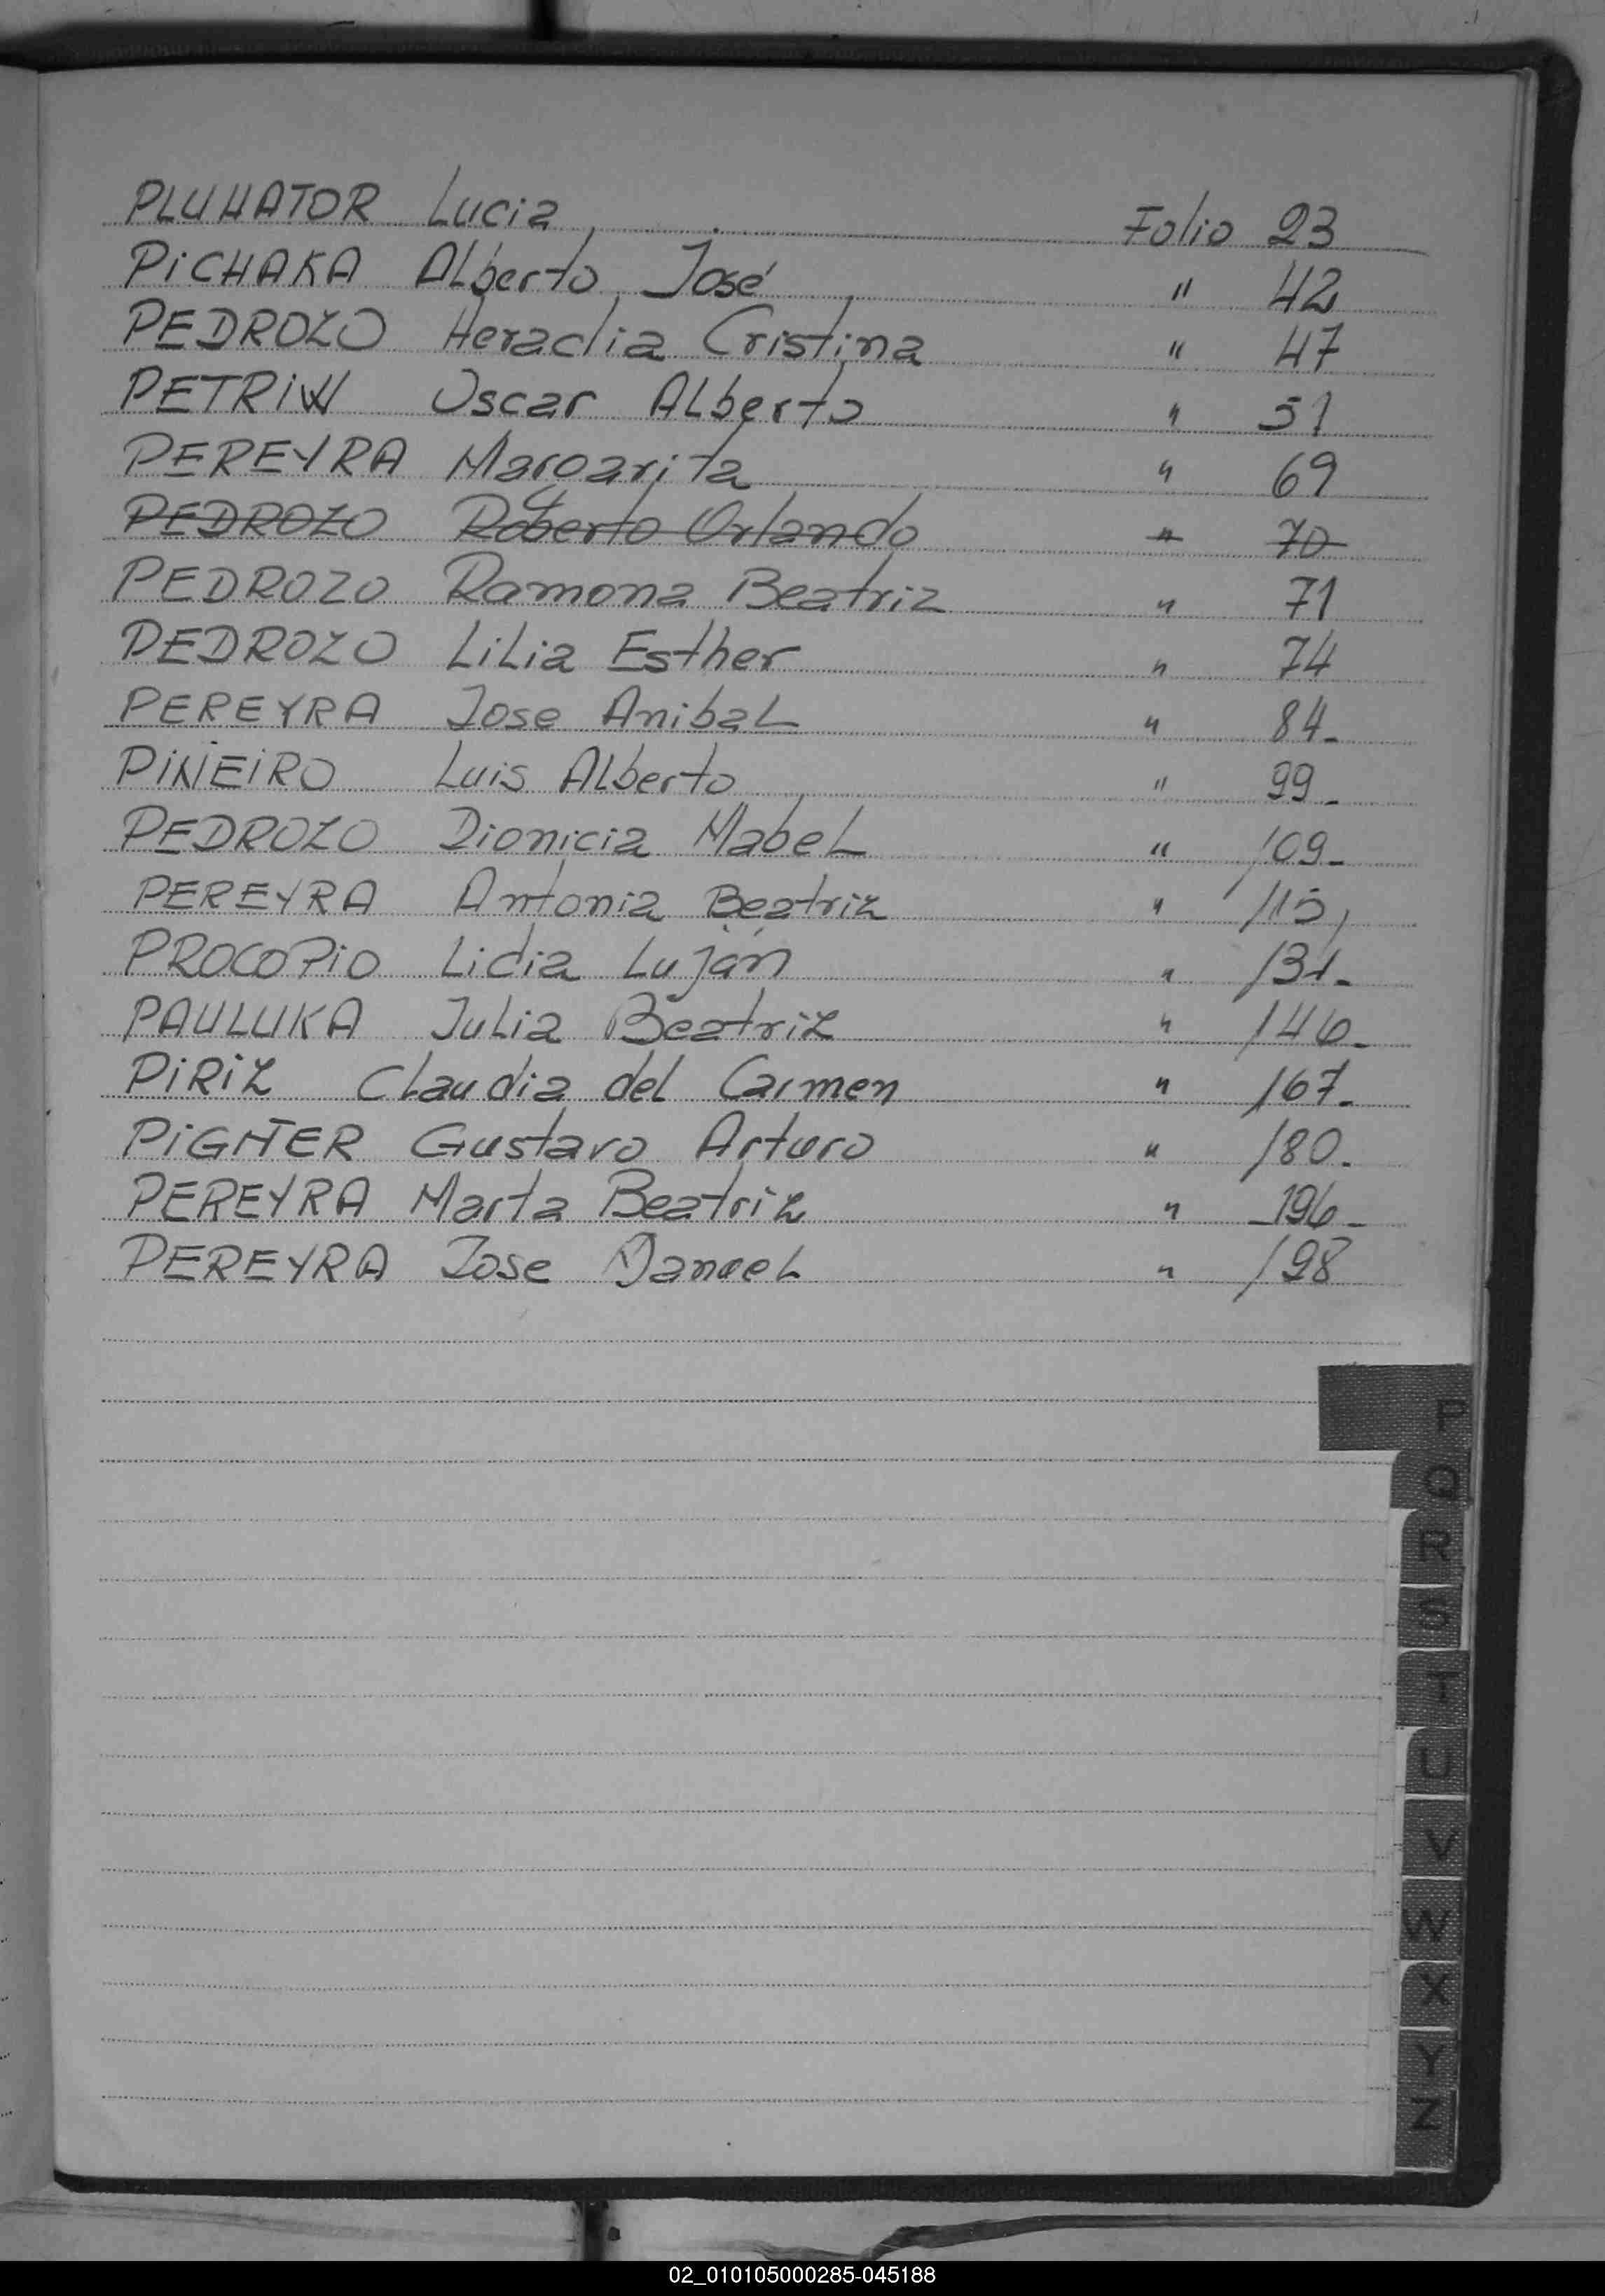 PLUHATOR Lucia Folio 23
PiCHAKA Alberto José " 42
PEDROZO Heraclia Cristina " 47
PETRiW Oscar Alberto " 51
PEREYRA Margarita " 69
PEDROZO Roberto Orlando " 70
PEDROZO Ramona Beatriz " 71
PEDROZO Lilia Esther " 74
PEREYRA Jose Anibal " 84-
PiÑEiRO Luis Alberto " 99-
PEDROZO Dionicia Mabel " 109-
PEREYRA Antonia Beatriz " 115,
PROCOPiO Lidia Luján " 131-
PAULUKA Julia Beatriz " 146-
PiRiZ Claudia del Carmen " 167-
Gustavo Arturo " 180.
PEREYRA Marta Beatriz " 196-
PEREYRA Jose " 198
P
Q
R
S
T
U
V
W
X
Y
Z
02_010105000285-045188